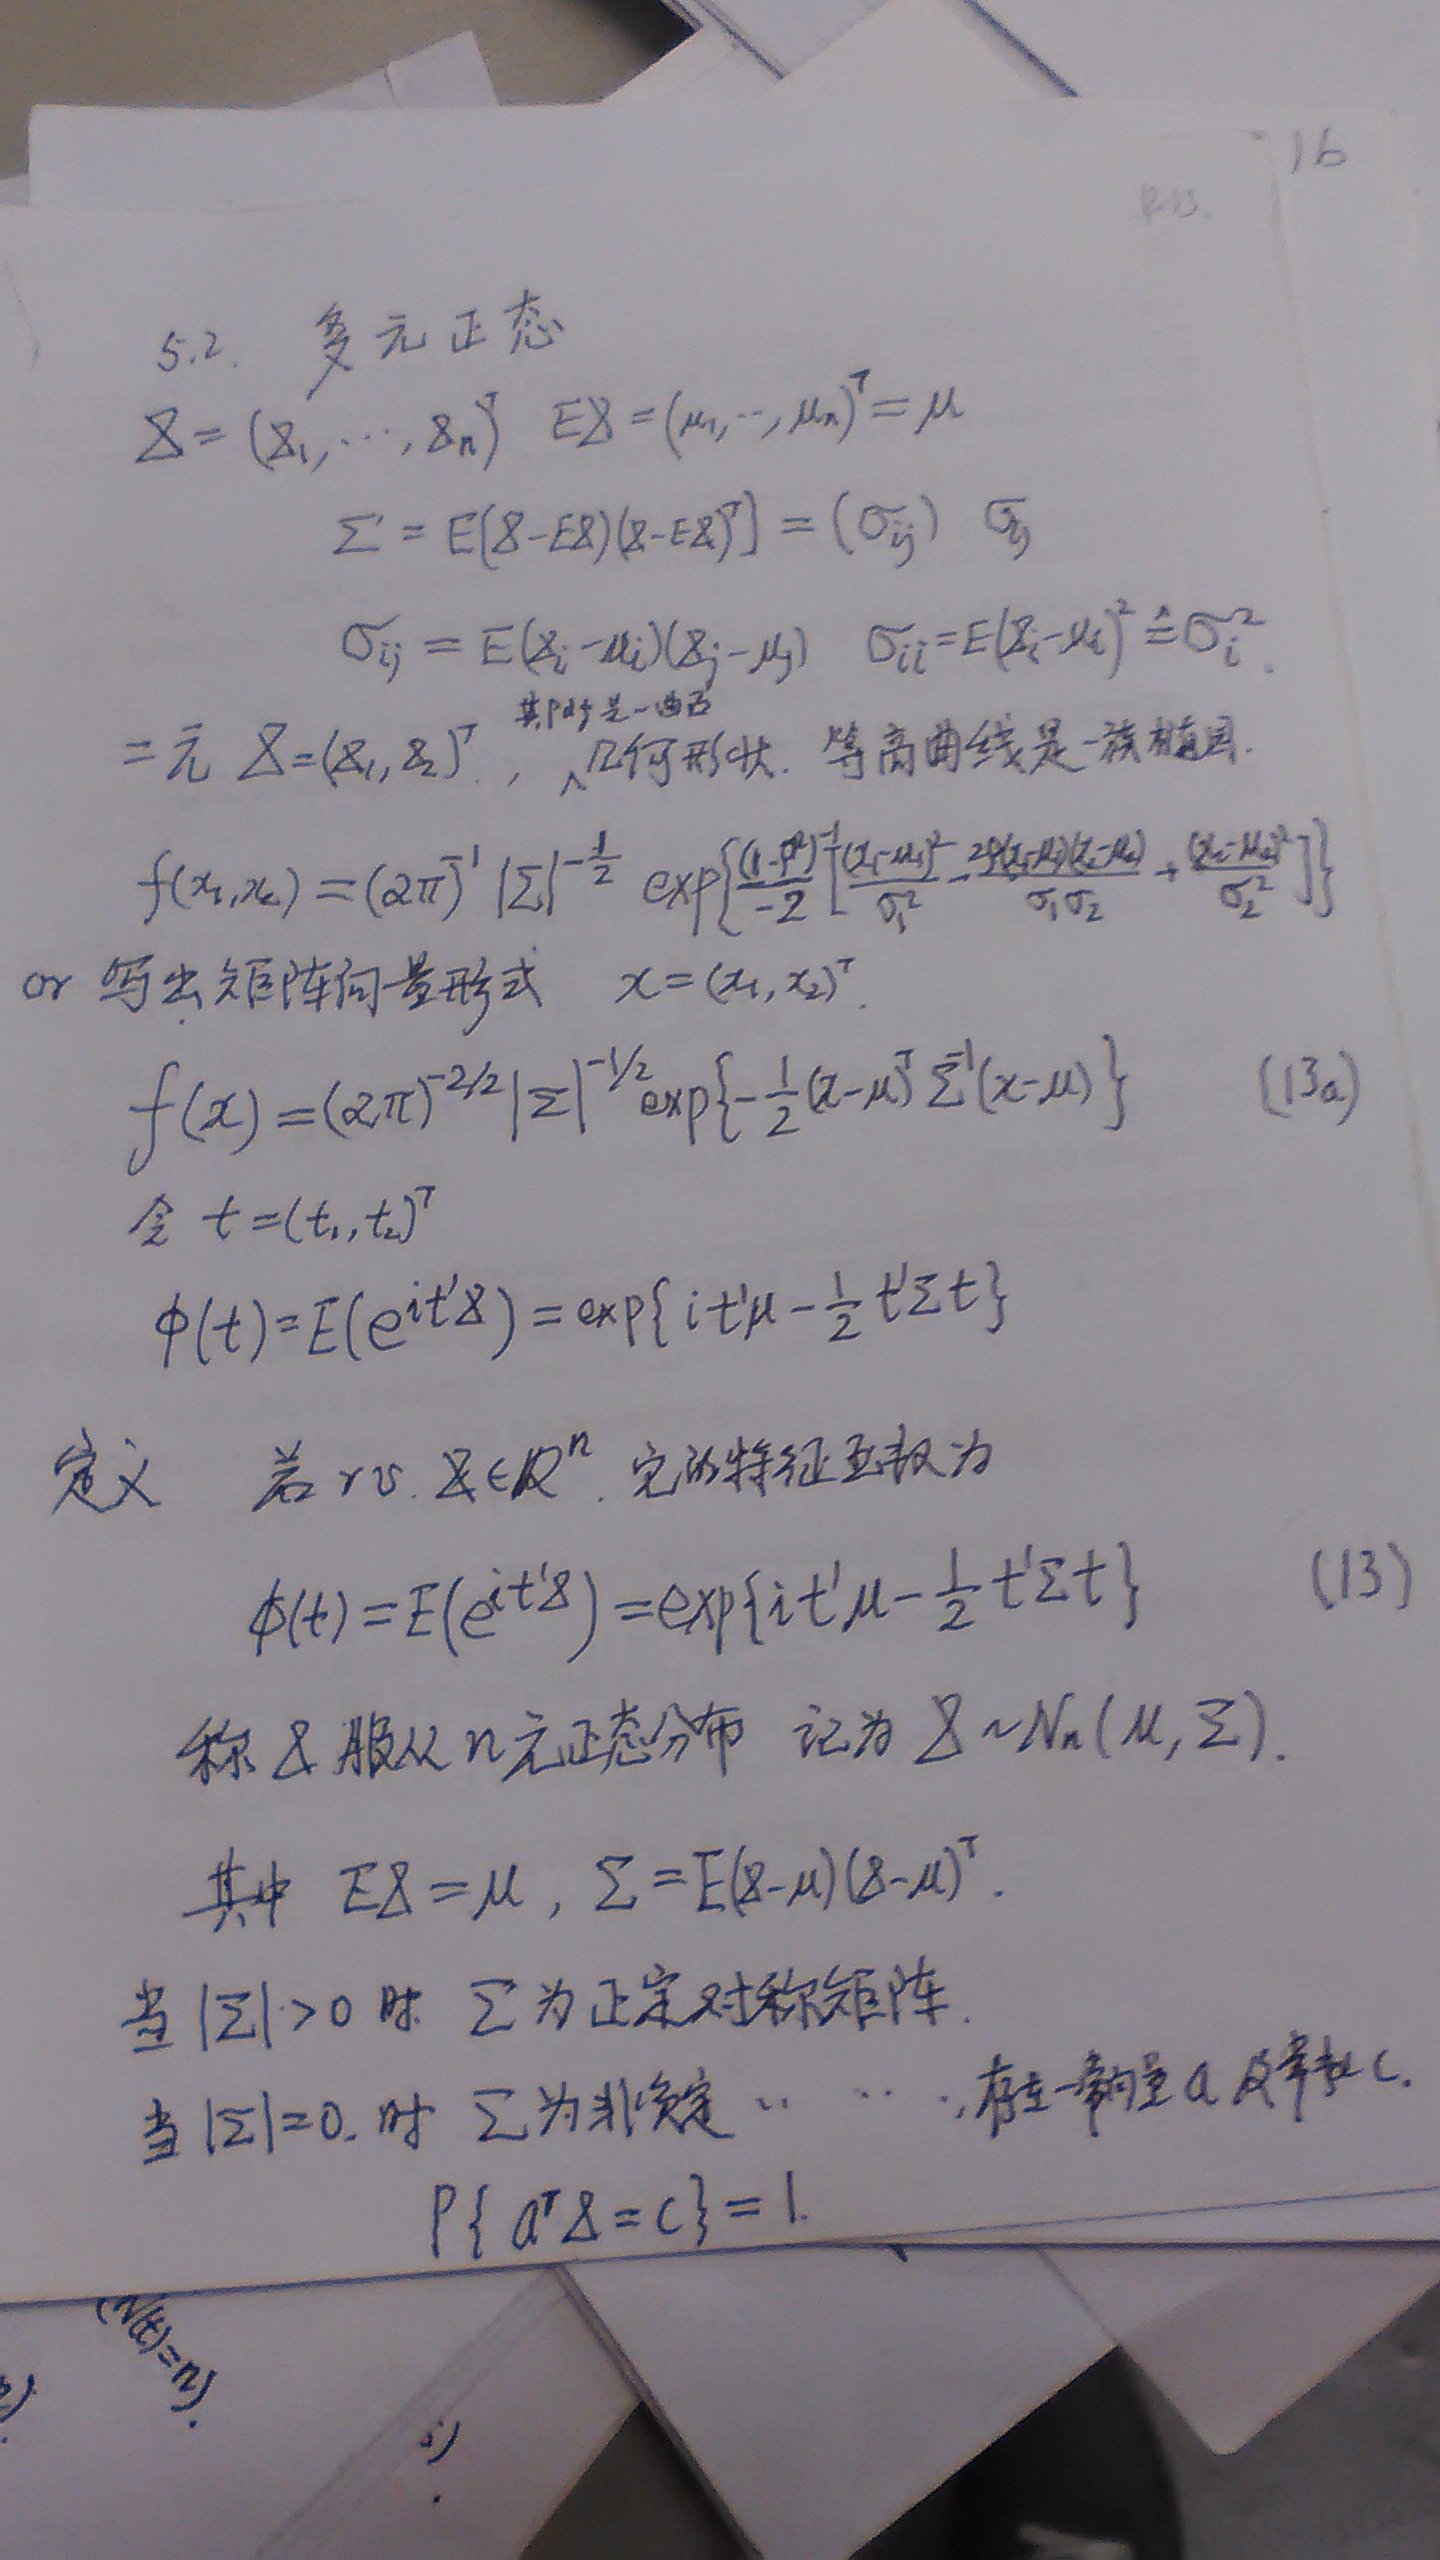 16
5.2. 多元正态
X = (X₁, ⋯, Xₙ)ᵀ EX = (μ₁, ⋯, μₙ)ᵀ = μ
Σ = E[(X-EX)(X-EX)ᵀ] = (σᵢⱼ) σᵢⱼ
σᵢⱼ = E(Xᵢ-μᵢ)(Xⱼ-μⱼ) σᵢᵢ = E(Xᵢ-μᵢ)² ≙ σᵢ².
其pdf是一曲面
二元 X=(X₁, X₂)ᵀ, 几何形状. 等高曲线是一族椭圆.
f(x₁,x₂) = (2π)⁻¹ |Σ|^{-1/2} exp{ (1-ρ²)⁻¹/-2 [ (x₁-μ₁)²/σ₁² - 2ρ(x₁-μ₁)(x₂-μ₂)/σ₁σ₂ + (x₂-μ₂)²/σ₂² ] }
or 写出矩阵向量形式 x = (x₁, x₂)ᵀ.
f(x) = (2π)^{-2/2} |Σ|^{-1/2} exp{ -1/2 (x-μ)ᵀ Σ⁻¹ (x-μ) } (13a)
令 t = (t₁, t₂)ᵀ
ϕ(t) = E(e^{it'X}) = exp{ it'μ - 1/2 t'Σt }
定义 若 rv. X∈Rⁿ. 它的特征函数为
ϕ(t) = E(e^{it'X}) = exp{ it'μ - 1/2 t'Σt } (13)
称 X 服从 n 元正态分布 记为 X ~ Nₙ(μ, Σ).
其中 EX = μ, Σ = E(X-μ)(X-μ)ᵀ.
当 |Σ| > 0 时 Σ 为正定对称矩阵.
当 |Σ| = 0. 时 Σ 为非负定 ‥ ‥ ., 存在一常向量 a 及常数 c.
P{ aᵀX = c } = 1.
(N(t)=n).